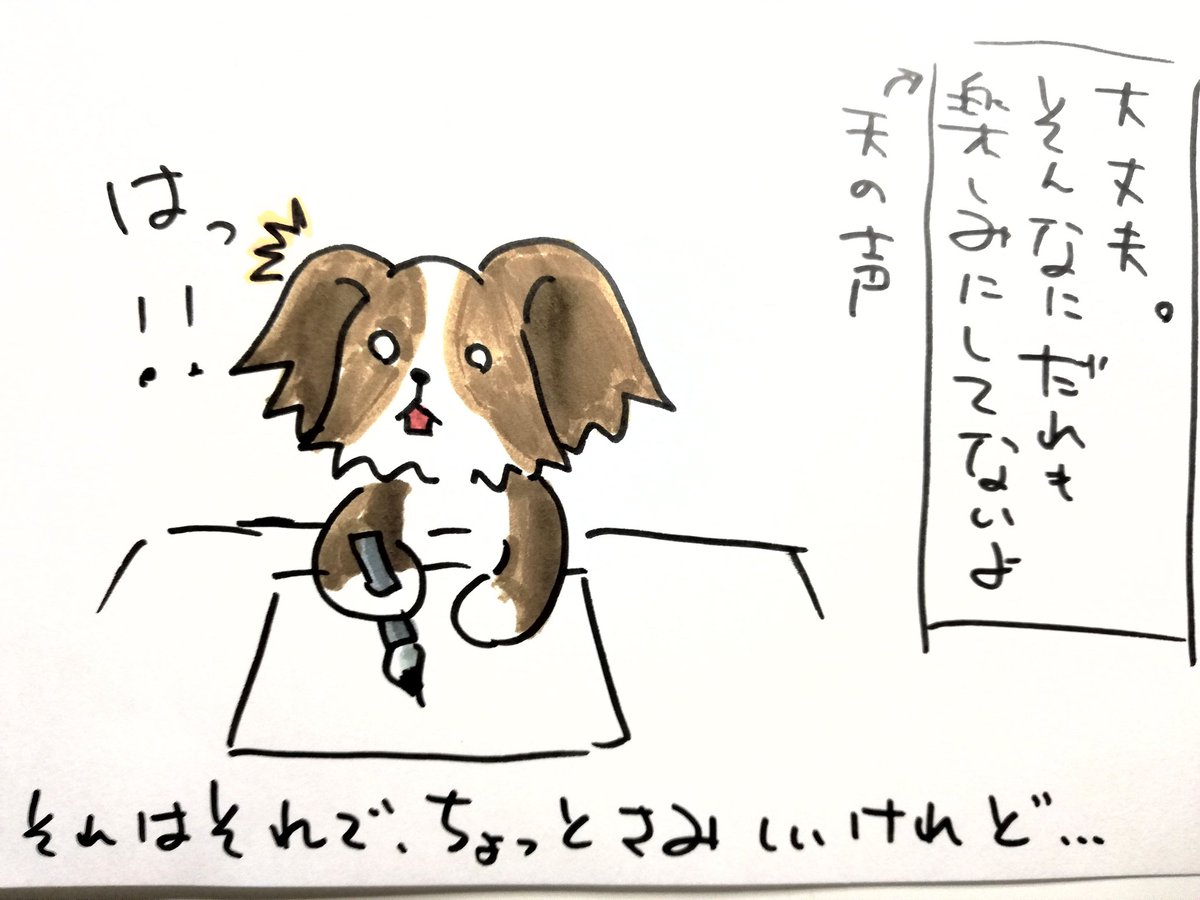 大丈夫。
そんなにだれも
楽しみにしてないよ
天の声
はっ
!!
それはそれで、ちょっとさみしいけれど…